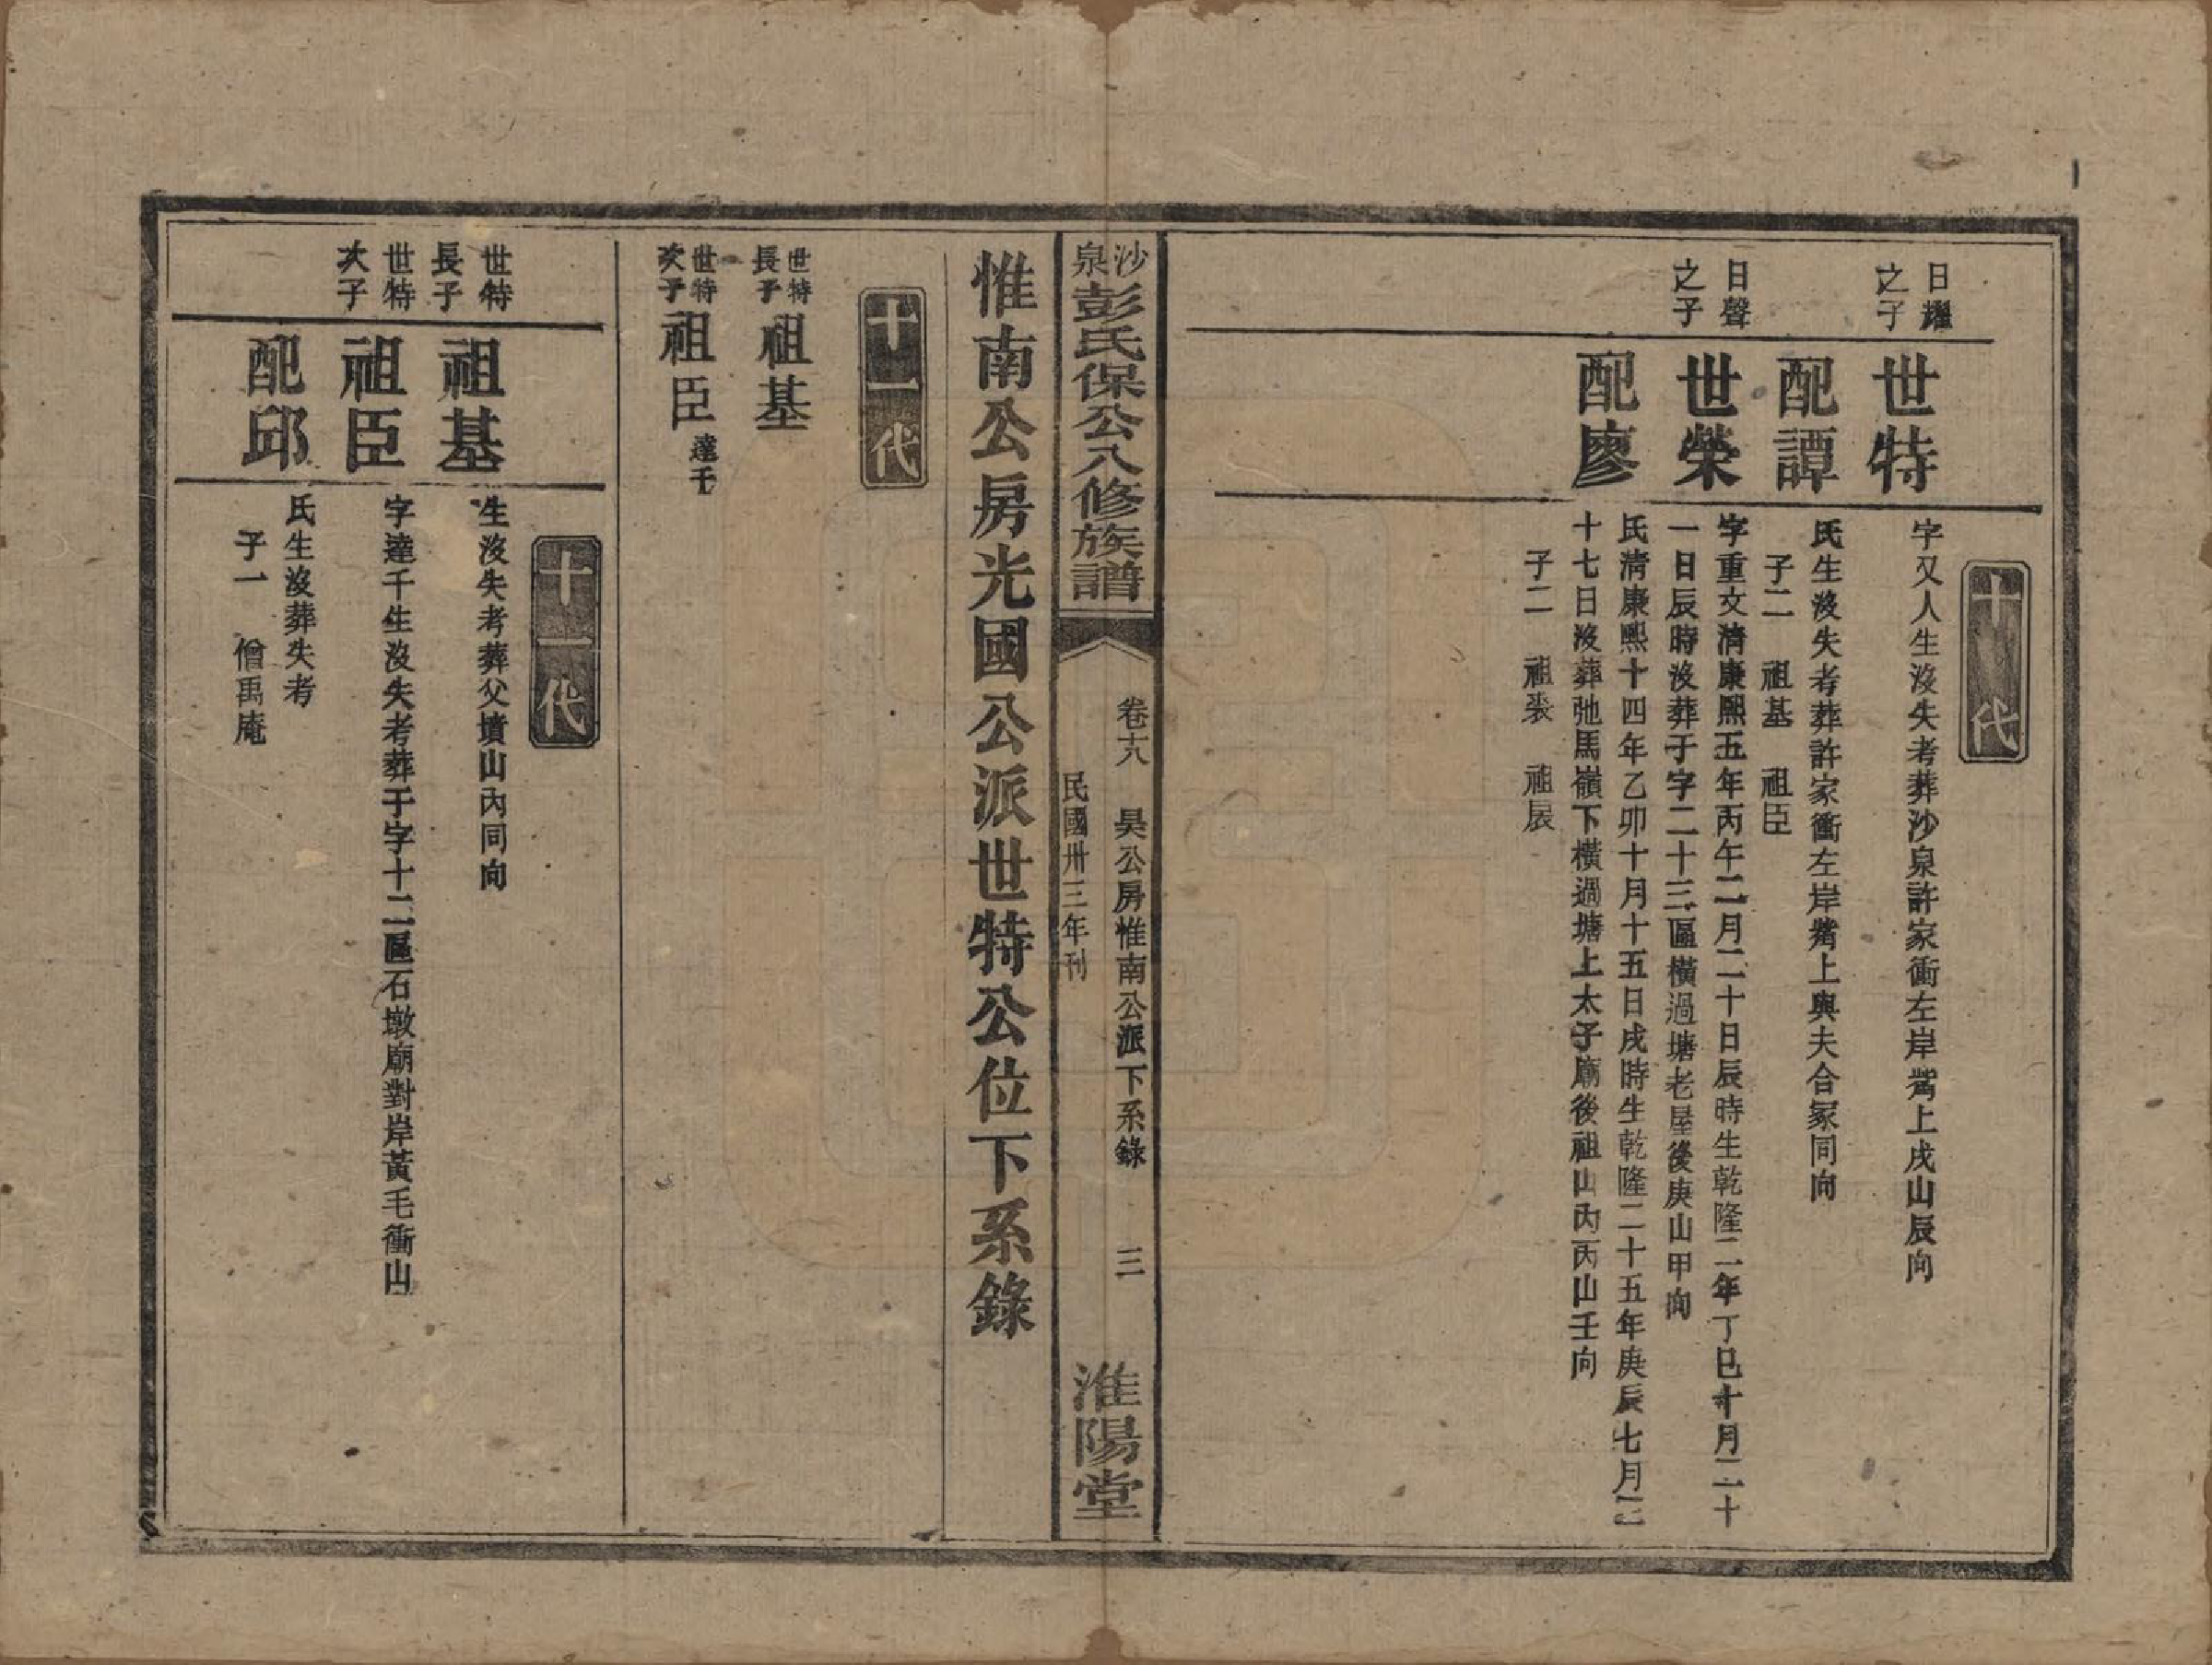 十代
日耀
之子
世特
字又人生沒失考葬沙泉許家衝左岸嘴上戌山辰向
配譚
氏生沒失考葬許家衝左岸嘴上與夫合冢同向
子二 祖基 祖臣
日聲
之子
世榮
字重文清康熙五年丙午二月二十日辰時生乾隆二年丁巳十月二十
一日辰時沒葬于字二十三區橫過塘老屋後庚山甲向
配廖
氏清康熙十四年乙卯十月十五日戌時生乾隆二十五年庚辰七月二
十七日沒葬弛馬嶺下橫過塘上太子廟後祖山內丙山壬向
子二 祖裘 祖扆
沙泉彭氏保公八修族譜
卷十八 昊公房惟南公派下系錄 三
民國卅三年刊
淮陽堂
惟南公房光國公派世特公位下系錄
十一代
世特
長子
祖基
世特
次子
祖臣 達千
十一代
世特
長子
祖基
生沒失考葬父墳山內同向
世特
次子
祖臣
字達千生沒失考葬于字十二區石墩廟對岸黃毛衝山
配邱
氏生沒葬失考
子一 僧禹庵